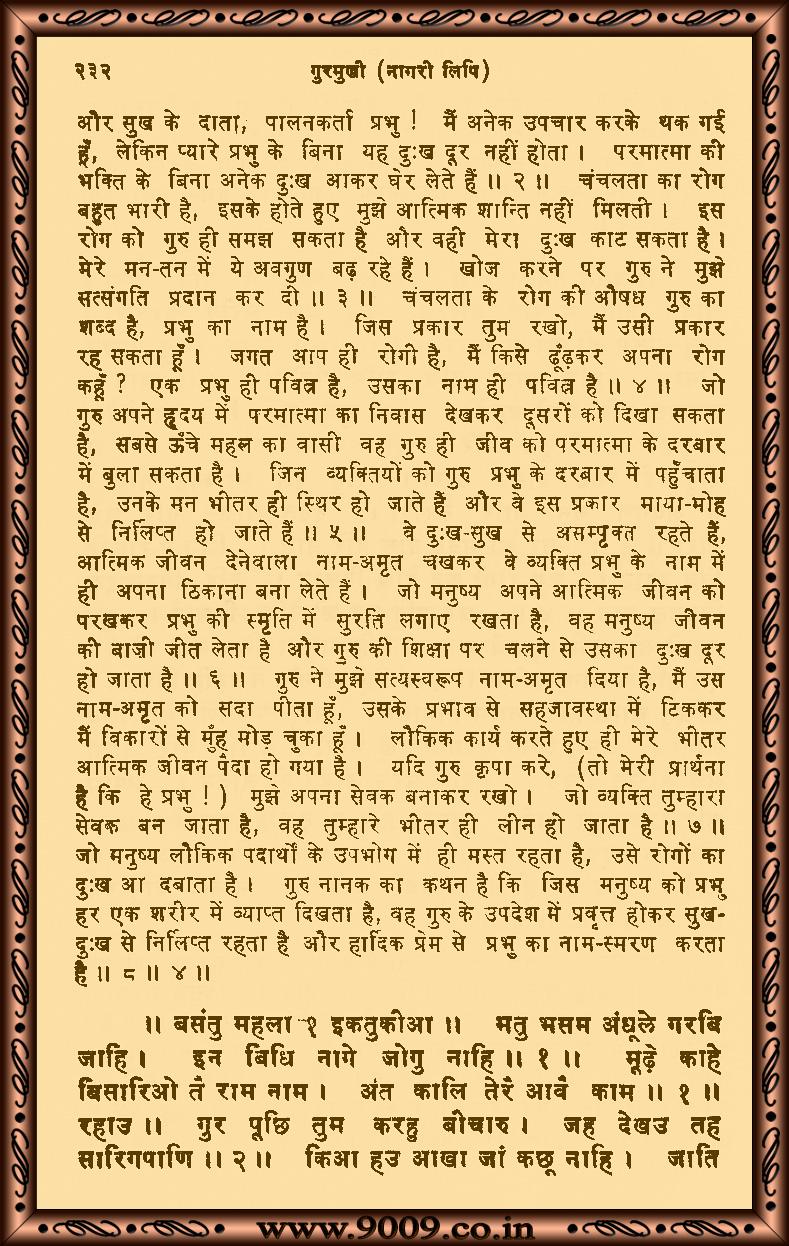 २३२ गुरमुखी (नागरी लिपि)
और सुख के दाता, पालनकर्ता प्रभु ! मैं अनेक उपचार करके थक गई
हूँ, लेकिन प्यारे प्रभु के बिना यह दुःख दूर नहीं होता । परमात्मा की
भक्ति के बिना अनेक दुःख आकर घेर लेते हैं ॥ २ ॥ चंचलता का रोग
बहुत भारी है, इसके होते हुए मुझे आत्मिक शान्ति नहीं मिलती । इस
रोग को गुरु ही समझ सकता है और वही मेरा दुःख काट सकता है ।
मेरे मन-तन में ये अवगुण बढ़ रहे हैं । खोज करने पर गुरु ने मुझे
सत्संगति प्रदान कर दी ॥ ३ ॥ चंचलता के रोग की औषध गुरु का
शब्द है, प्रभु का नाम है । जिस प्रकार तुम रखो, मैं उसी प्रकार
रह सकता हूँ । जगत आप ही रोगी है, मैं किसे ढूँढ़कर अपना रोग
कहूँ ? एक प्रभु ही पवित्र है, उसका नाम ही पवित्र है ॥ ४ ॥ जो
गुरु अपने हृदय में परमात्मा का निवास देखकर दूसरों को दिखा सकता
है, सबसे ऊँचे महल का वासी वह गुरु ही जीव को परमात्मा के दरबार
में बुला सकता है । जिन व्यक्तियों को गुरु प्रभु के दरबार में पहुँचाता
है, उनके मन भीतर ही स्थिर हो जाते हैं और वे इस प्रकार माया-मोह
से निर्लिप्त हो जाते हैं ॥ ५ ॥ वे दुःख-सुख से असम्पृक्त रहते हैं,
आत्मिक जीवन देनेवाला नाम-अमृत चखकर वे व्यक्ति प्रभु के नाम में
ही अपना ठिकाना बना लेते हैं । जो मनुष्य अपने आत्मिक जीवन को
परखकर प्रभु की स्मृति में सुरति लगाए रखता है, वह मनुष्य जीवन
की बाज़ी जीत लेता है और गुरु की शिक्षा पर चलने से उसका दुःख दूर
हो जाता है ॥ ६ ॥ गुरु ने मुझे सत्यस्वरूप नाम-अमृत दिया है, मैं उस
नाम-अमृत को सदा पीता हूँ, उसके प्रभाव से सहजावस्था में टिककर
मैं विकारों से मुँह मोड़ चुका हूँ । लौकिक कार्य करते हुए ही मेरे भीतर
आत्मिक जीवन पैदा हो गया है । यदि गुरु कृपा करे, (तो मेरी प्रार्थना
है कि हे प्रभु !) मुझे अपना सेवक बनाकर रखो । जो व्यक्ति तुम्हारा
सेवक बन जाता है, वह तुम्हारे भीतर ही लीन हो जाता है ॥ ७ ॥
जो मनुष्य लौकिक पदार्थों के उपभोग में ही मस्त रहता है, उसे रोगों का
दुःख आ दबाता है । गुरु नानक का कथन है कि जिस मनुष्य को प्रभु
हर एक शरीर में व्याप्त दिखता है, वह गुरु के उपदेश में प्रवृत्त होकर सुख-
दुःख से निर्लिप्त रहता है और हार्दिक प्रेम से प्रभु का नाम-स्मरण करता
है ॥ ८ ॥ ४ ॥
॥ बसंतु महला १ इकतुकीआ ॥ मतु भसम अंधूले गरबि
जाहि । इन बिधि नागे जोगु नाहि ॥ १ ॥ मूढ़े काहे
बिसारिओ तै राम नाम । अंत कालि तेरै आवै काम ॥ १ ॥
रहाउ ॥ गुर पूछि तुम करहु बीचारु । जह देखउ तह
सारिगपाणि ॥ २ ॥ किआ हउ आखा जां कछू नाहि । जाति
www.9009.co.in